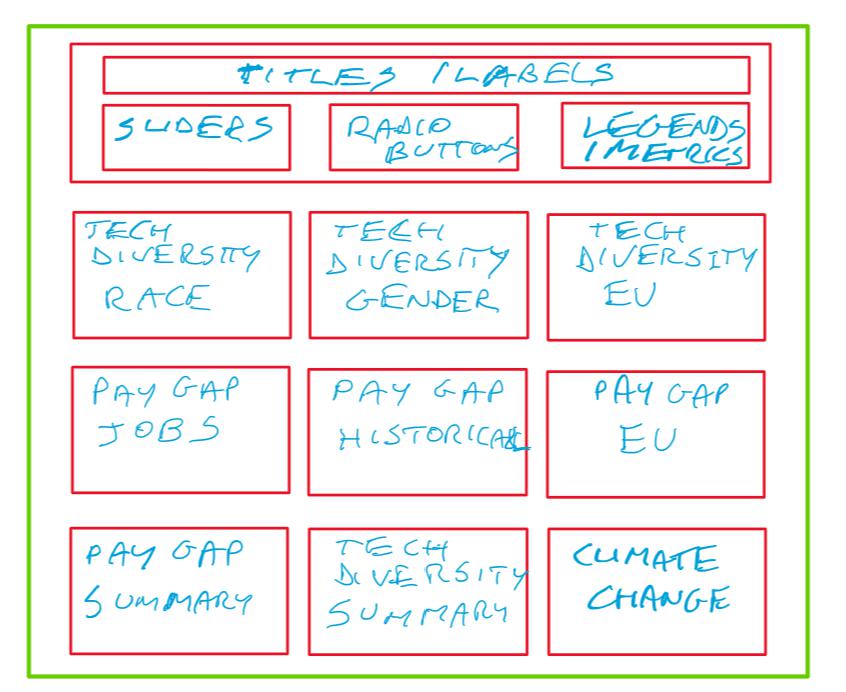 TITLES / LABELS
SLIDERS
RADIO
BUTTONS
LEGENDS
/ METRICS
TECH
DIVERSITY
RACE
TECH
DIVERSITY
GENDER
TECH
DIVERSITY
EU
PAY GAP
JOBS
PAY GAP
HISTORICAL
PAY GAP
EU
PAY GAP
SUMMARY
TECH
DIVERSITY
SUMMARY
CLIMATE
CHANGE